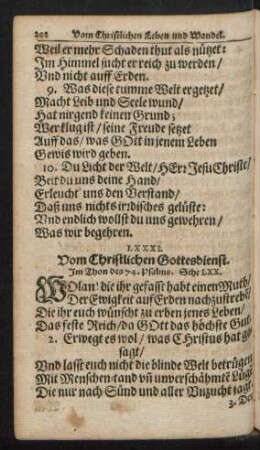 202 Vom Christlichen Leben und Wandel.
Weil er mehr Schaden thut als nützet:
Im Himmel sucht er reich zu werden/
Vnd nicht auff Erden.
9. Was diese tumme Welt ergetzet/
Macht Leib und Seele wund/
Hat nirgend keinen Grund;
Wer klug ist/ seine Freude setzet
Auff das/ was GOtt in jenem Leben
Gewis wird geben.
10. Du Licht der Welt/ HErr Jesu Christe/
Beit du uns deine Hand/
Erleucht' uns den Verstand/
Daß uns nichts irdisches gelüste:
Vnd endlich wollst du uns gewehren/
Was wir begehren.
LXXXI.
Vom Christlichen Gottesdienst.
Im Thon des 74. Psalms. Sihe LXX.
WOlan! die ihr gefasst habt einen Muth/
Der Ewigkeit auf Erden nachzustrebē/
Die ihr euch wünscht zu erben jenes Leben/
Das feste Reich/ da GOtt das höchste Gut.
2. Erwegt es wol/ was CHristus hat ge-
sagt/
Vnd lasst euch nicht die blinde Welt betrügen
Mit Menschen-tand uñ unverschähmtē Lüge
Die nur nach Sünd und aller Vnzucht jagt.
3. Der